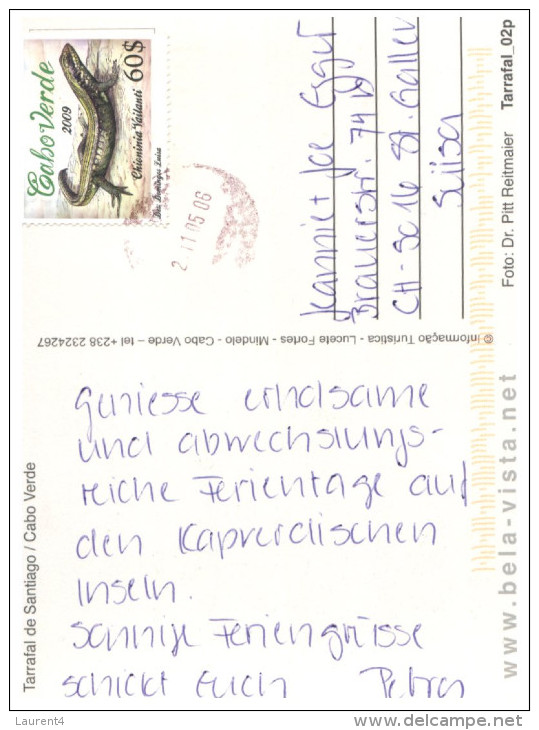 Cabo Verde
2009
60$
Chioninia Vailanti
Luis Domingos Luisa
2 11 05 06
Brauerstr. 74
CH-9016 St. Gallen
Foto: Dr. Pitt Reitmaier Tarrafal_02p
© Informação Turistica - Lucete Fortes - Mindelo - Cabo Verde – tel +238 2324267
www.bela-vista.net
Tarrafal de Santiago / Cabo Verde
Geniesse erholsame
und abwechslungs-
reiche Ferientage auf
den Kapverdischen
Inseln.
Sonnige Feriengrüsse
schickt Euch Petra
Laurent4